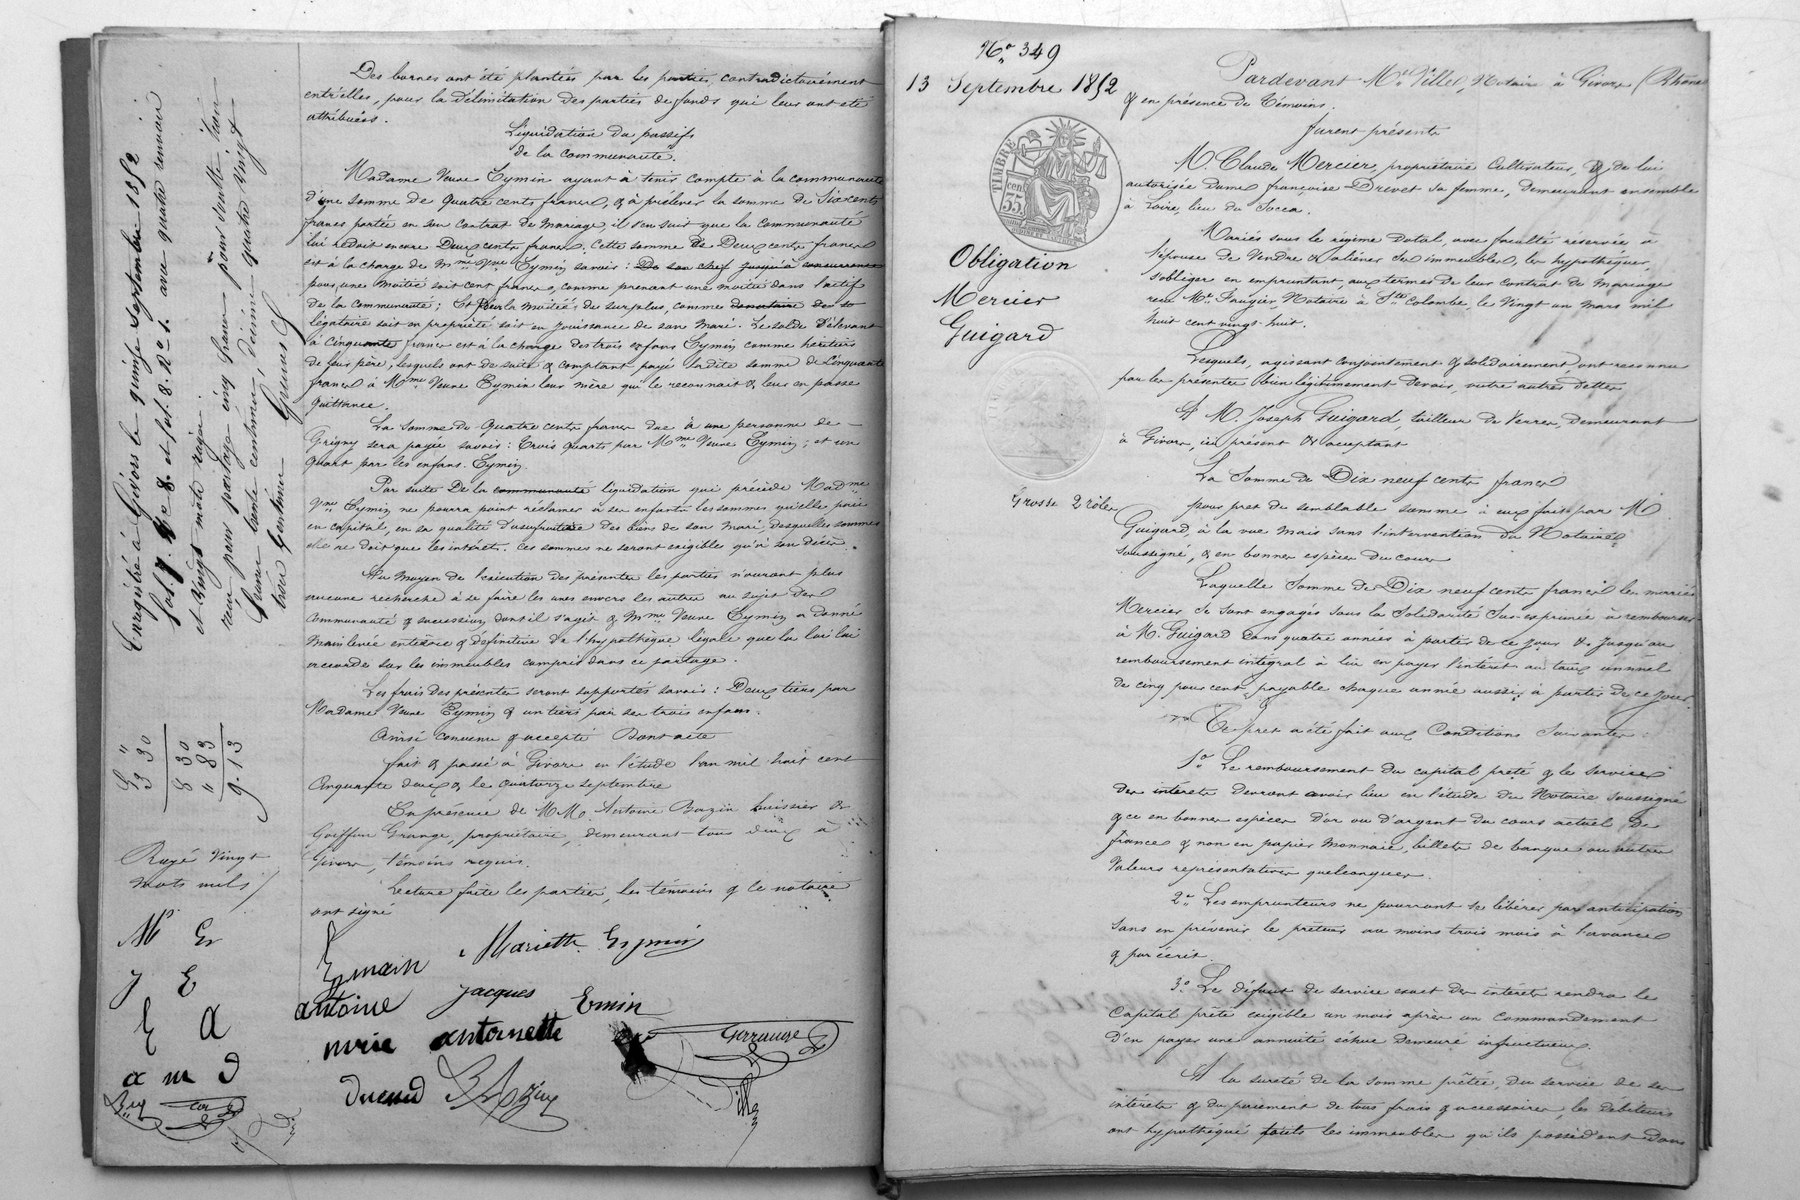 Des bornes ont été plantées par les parties, contradictoirement
entr'elles, pour la délimitation des parties de fonds qui leur ont été
attribuées.
Liquidation du passif
de la communauté.
Madame Veuve Eymin ayant à tenir compte à la communauté
d'une somme de Quatre cents francs, & à prélever la somme de Six cents
francs portée en son contrat de mariage, il s'en suit que la communauté
lui redoit encore Deux cents francs. Cette somme de Deux cents francs
est à la charge de Mme Vve Eymin savoir : De son chef jusqu'à concurrence
pour une moitié soit cent francs, comme prenant une moitié dans l'actif
de la communauté ; Et pour la moitié de surplus, comme donataire de
légataire soit en propriété soit en jouissance de son mari. Le solde s'élevant
à Cinquante francs est à la charge des trois enfans Eymin comme héritiers
de leur père, lesquels ont de suite & comptant payé ladite somme de Cinquante
francs à Mme Veuve Eymin leur mère qui le reconnait & leur en passe
quittance.
La somme de Quatre cents francs due à une personne de
Grigny sera payée savoir : Trois quarts par Mme Veuve Eymin ; et un
quart par les enfans Eymin.
Par suite De la communauté liquidation qui précède Madme
Vve Eymin ne pourra point réclamer à ses enfants les sommes qu'elle paie
en capital, en sa qualité d'usufruitière des biens de son mari, desquelles sommes
elle ne doit que les intérêts. Ces sommes ne seront exigibles qu'à son décès.
Au moyen de l'exécution des présentes les parties n'auront plus
aucune recherche à se faire les unes envers les autres au sujet des
communauté & succession dont il s'agit & Mme Veuve Eymin a donné
main levée entière & définitive de l'hypothèque légale que la loi lui
accorde sur les immeubles compris dans ce partage.
Les frais des présentes seront supportés savoir : Deux tiers par
Madame Veuve Eymin & un tiers par ses trois enfans.
Ainsi convenu & accepté Dont acte
fait & passé à Givors en l'étude l'an mil huit cent
Cinquante deux & le quatorze septembre
En présence de MM. Antoine Bazin huissier &
Goiffon Grange, propriétaire, demeurant tous deux à
Givors, témoins requis.
Lecture faite les parties, les témoins & le notaire
ont signé
Eymain Mariette Eymin
antoine Jacques Emin
marie antoinette
Enregistré à Givors le quinze septembre 1852
fol. 7. Vo c. 8. et fol. 8. Ro c. 1. avec quatre renvois
et vingt mots rayés.
reçu pour partage cinq francs pour soulte trois
francs trente centimes, décime quatre vingt
trois centimes
5 "
3 30
8 30
" 83
9.13
Rayé vingt
mots nuls
M E
J E
E A
a m d
No 349
13 Septembre 1852
TIMBRE
55
Obligation
Mercier
Guigard
Grosse 2 rôles
Pardevant Me Villes, Notaire à Givors (Rhône
& en présence de Témoins.
furent présents
M Claude Mercier, propriétaire Cultivateur, & de lui
autorisée Dame françoise Drevet sa femme, demeurant ensemble
à Loire, lieu du Socca.
Mariés sous le régime dotal, avec faculté réservée à
l'épouse de Vendre & aliéner ses immeubles, les hypothéquer,
s'obliger en empruntant, aux termes de leur contrat de mariage
reçu Me Faugier, Notaire à Ste Colombe, le Vingt un mars mil
huit cent vingt-huit.
Lesquels, agissant conjointement & solidairement ont reconnu
par les présentes bien légitimement devoir, entre autres dettes
A M. Joseph Guigard, tailleur de Verres, demeurant
à Givors, ici présent & acceptant
La Somme de Dix neuf cents francs
pour prêt de semblable somme à eux fait par M
Guigard, à la vue mais sans l'intervention du Notaire
soussigné, & en bonnes espèces du cours
Laquelle Somme de Dix neuf cents francs les mariés
Mercier se sont engagés sous la Solidarité sus-exprimée à rembourser
à M. Guigard dans quatre années à partir de ce jour & jusqu'au
remboursement intégral à lui en payer l'intérêt au taux annuel
de cinq pour cent, payable chaque année aussi à partir de ce jour.
Ce prêt a été fait aux Conditions Suivantes :
1o Le remboursement du capital prêté & le service
des intérêts devront avoir lieu en l'étude du Notaire soussigné
& ce en bonnes espèces d'or ou d'argent du cours actuel de
france & non en papier monnaie, billets de banque ou autres
Valeurs représentatives quelconques.
2o Les emprunteurs ne pourront se libérer par anticipation
sans en prévenir le prêteur au moins trois mois à l'avance
& par écrit.
3o Le défaut de service exact des intérêts rendra le
Capital prêté exigible un mois après un commandement
d'en payer une annuité échue demeuré infructueux.
A la sureté de la somme prêtée, du service de ses
intérêts & du paiement de tous frais & accessoires, les débiteurs
ont hypothéqué touts les immeubles qu'ils possèdent dans